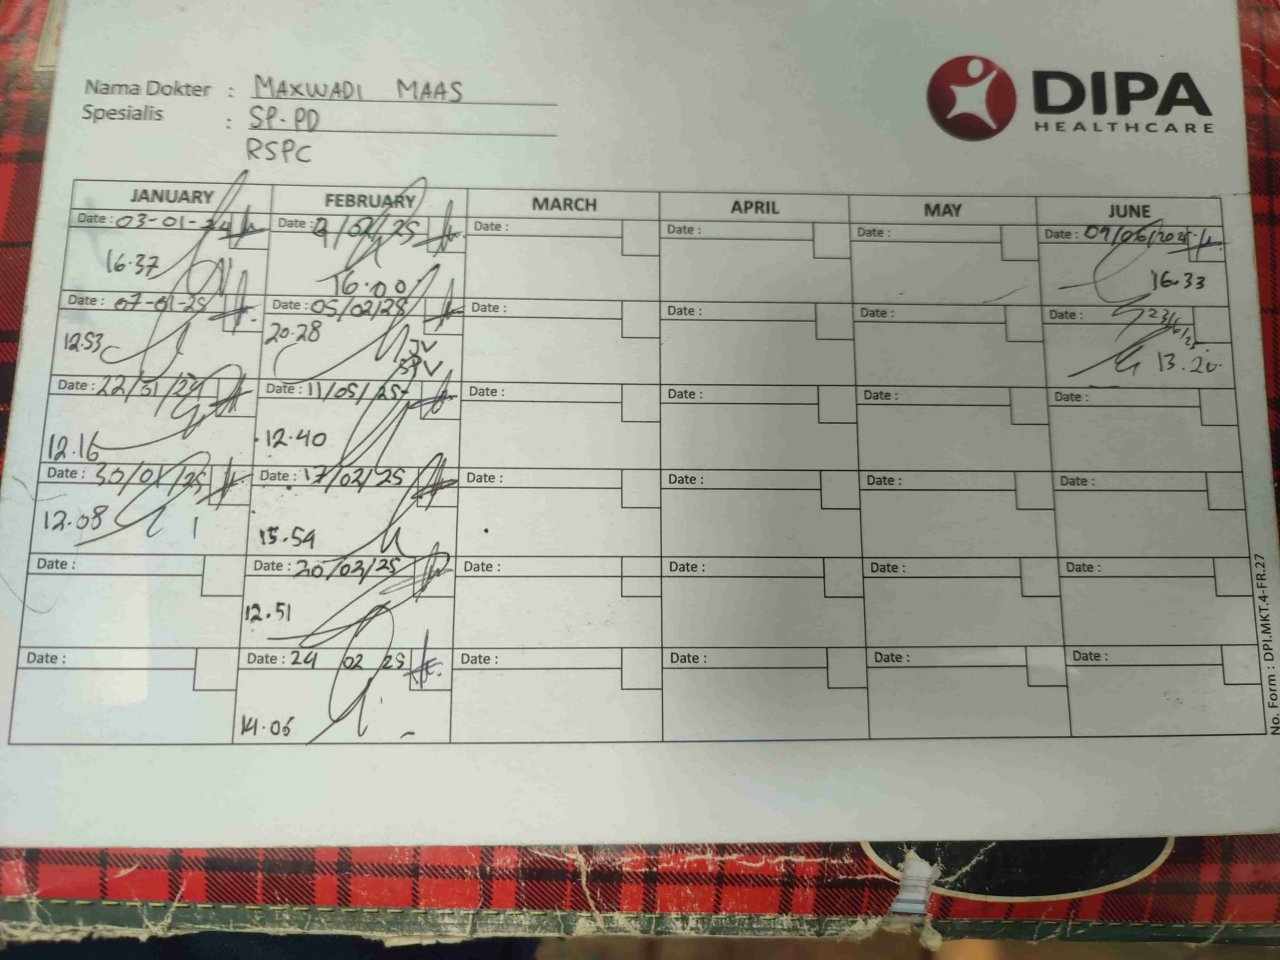 Nama Dokter : MAXWADI MAAS
Spesialis : SP.PD
RSPC
DIPA
HEALTHCARE
JANUARY FEBRUARY MARCH APRIL MAY JUNE
Date : 03-01-24 Date : /02/25 Date : Date : Date : Date : 09/06/2025
16.37 16.00 16.33
Date : 07-01-25 Date : 05/02/25 Date : Date : Date : Date : 23/6/25
12.53 20.28 13.20
JV
SPV
Date : 22/01/25 Date : 11/05/25 Date : Date : Date : Date :
12.16 12.40
Date : 30/01/25 Date : 17/02/25 Date : Date : Date : Date :
12.08 15.54
Date : Date : 20/02/25 Date : Date : Date : Date :
12.51
Date : Date : 24 02 25 Date : Date : Date : Date :
14.05
No. Form : DPI.MKT.4-FR.27